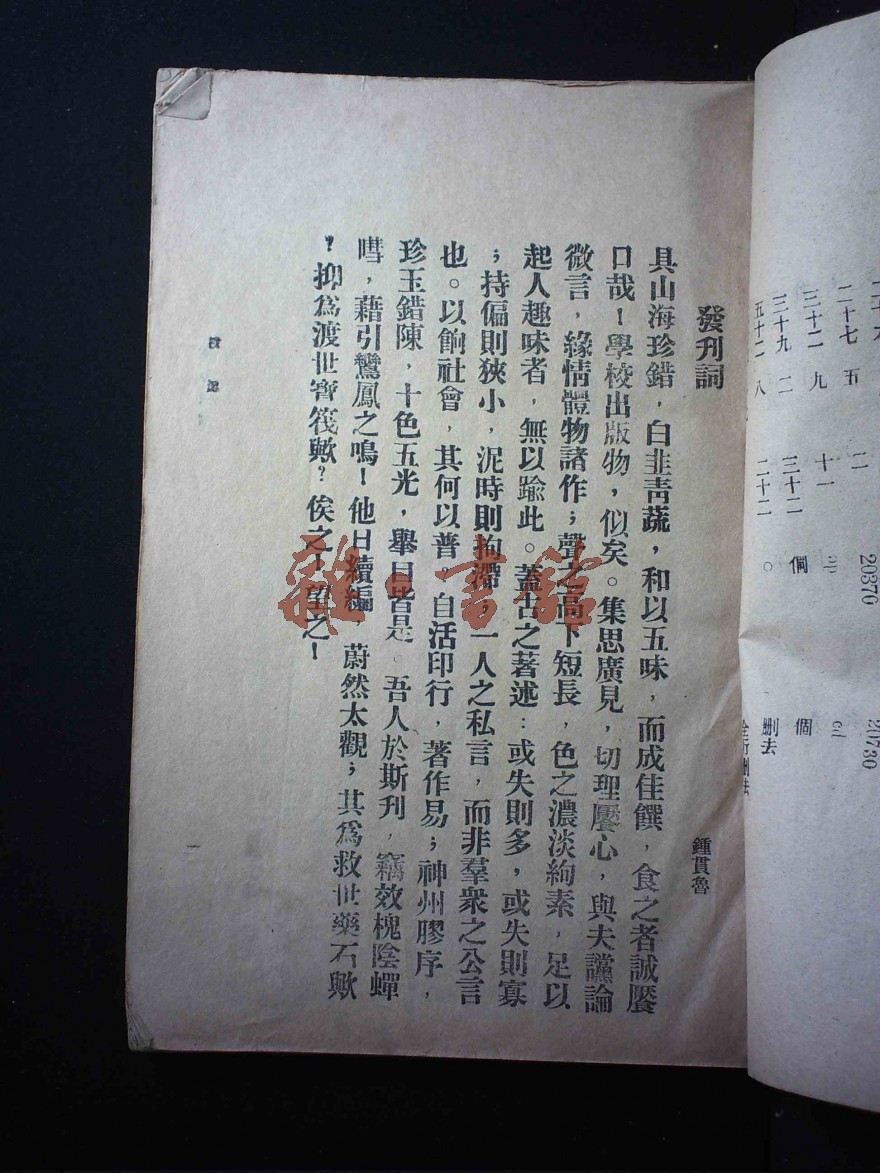 發刊詞
鍾貫魯
具山海珍錯，白韭靑蔬，和以五味，而成佳饌，食之者誠饜
口哉！學校出版物，似矣。集思廣見，切理饜心，與夫讜論
微言，緣情體物諸作；聲之高下短長，色之濃淡絢素，足以
起人趣味者，無以踰此。蓋古之著述：或失則多，或失則寡
；持偏則狹小，泥時則拘滯；一人之私言，而非羣衆之公言
也。以餉社會，其何以普。自活印行，著作易；神州膠序，
珍玉錯陳，十色五光，舉目皆是。吾人於斯刋，竊效槐陰蟬
嘒，藉引鸞鳳之鳴！他日續編　蔚然大觀；其爲救世藥石歟
？抑爲渡世寶筏歟？俟之！望之！
一
雜·書館
二十七　五
三十二　九
三十九　二
五十二　八
二
十一
三十二
二十二
20370
20730
個
刪去
全行刪去